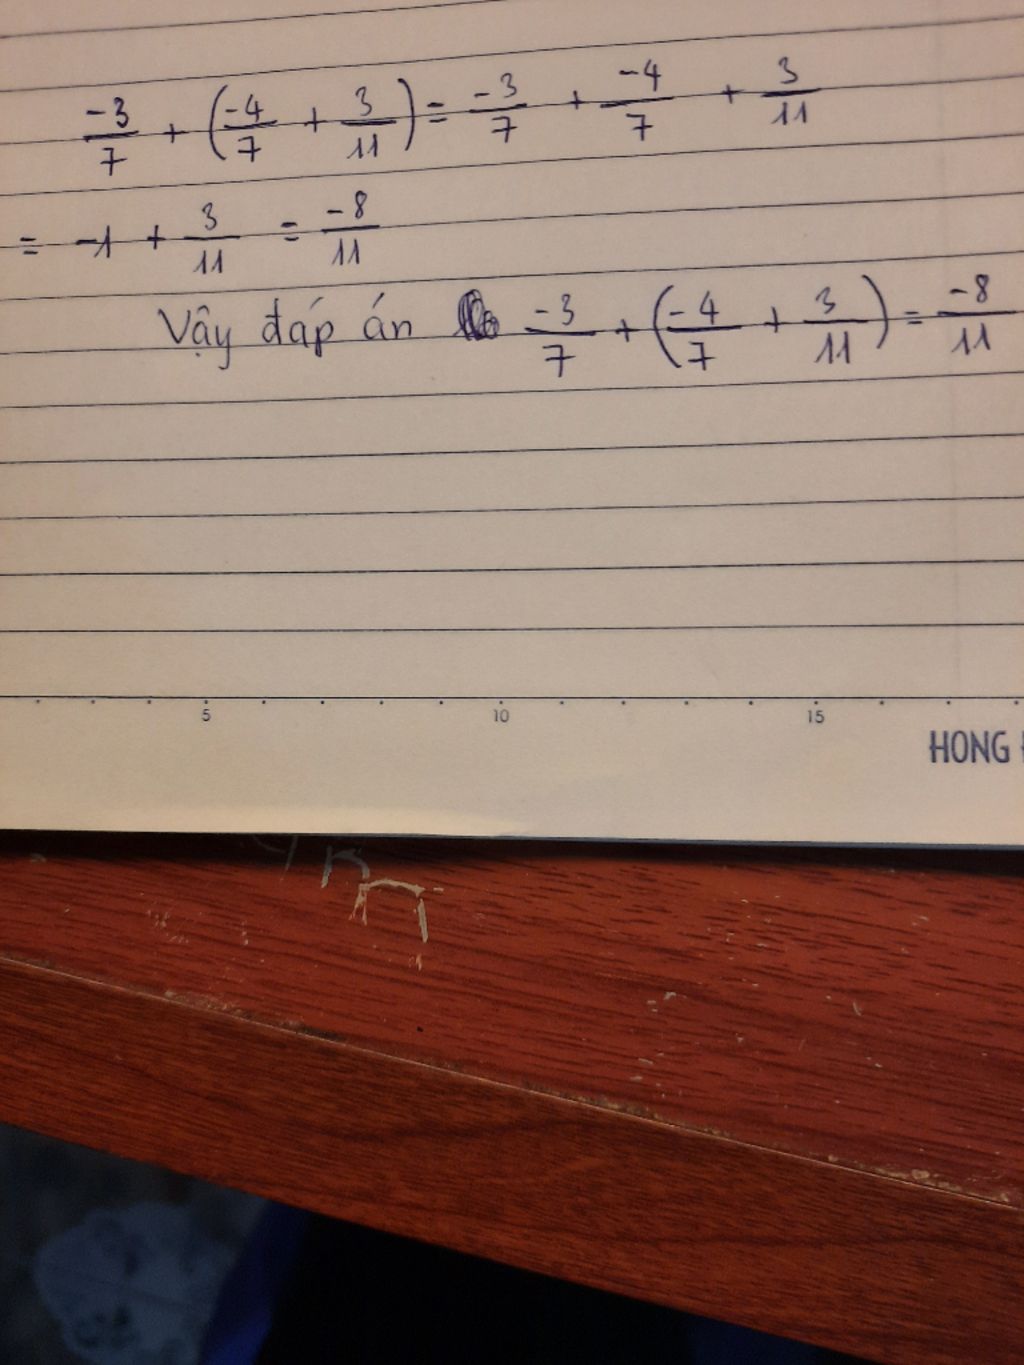 -3/7 + (-4/7 + 3/11) = -3/7 + -4/7 + 3/11
= -1 + 3/11 = -8/11
Vậy đáp án -3/7 + (-4/7 + 3/11) = -8/11
5 10 15
HONG